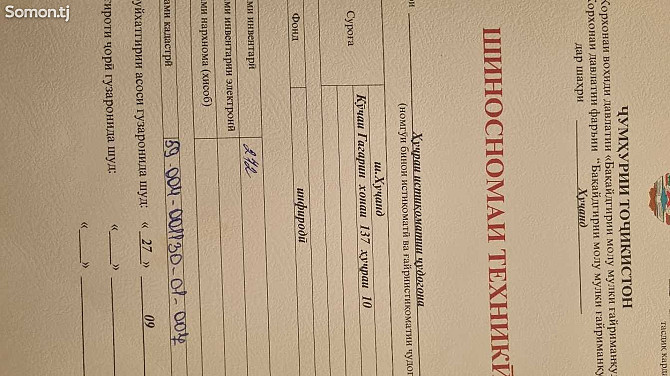 Somon.tj
ҶУМҲУРИИ ТОҶИКИСТОН
Корхонаи воҳиди давлатии «Бақайдгирии молу мулки ғайриманқу
Корхонаи давлатии фаръии "Бақайдгирии молу мулки ғайриманқу
дар шаҳри Хуҷанд
ШИНОСНОМАИ ТЕХНИКӢ
Ҳуҷраи истиқоматии ҷудогона
(номгӯи бинои истиқоматӣ ва ғайриистиқоматии ҷудог
Суроға
ш.Хуҷанд
Кӯчаи Гагарин хонаи 137 ҳуҷраи 10
Фонд инфиродӣ
ами инвентарӣ 242
ами инвентарии электронӣ
ами нархнома (ҳисоб)
ами кадастрӣ
уйхатгирии асоси гузаронида шуд: « 27 » 09
ироти ҷорӣ гузаронида шуд: « »
« »